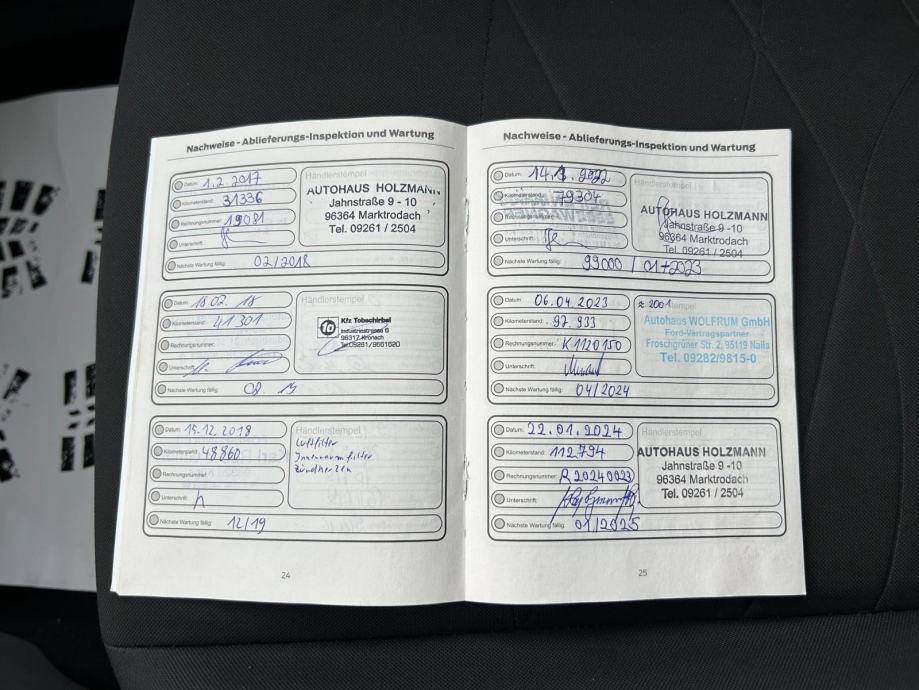 Nachweise - Ablieferungs-Inspektion und Wartung
Datum: 1.2.2017
Kilometerstand: 31336
Rechnungsnummer: 19081
Unterschrift:
Nächste Wartung fällig: 02/2018
Händlerstempel
AUTOHAUS HOLZMANN
Jahnstraße 9 - 10
96364 Marktrodach
Tel. 09261 / 2504
Datum: 18.02.18
Kilometerstand: 41 301
Rechnungsnummer:
Unterschrift:
Nächste Wartung fällig: 02.19
Händlerstempel
1a Kfz Tobschirbel
Industriestrasse 6
96317 Kronach
Datum: 15.12.2018
Kilometerstand: 48860
Rechnungsnummer:
Unterschrift:
Nächste Wartung fällig: 12/19
Händlerstempel
Luftfilter
Innenraumfilter
Zündkerzen
24
Nachweise - Ablieferungs-Inspektion und Wartung
Datum: 2022
Kilometerstand: 79304
Rechnungsnummer:
Unterschrift:
Nächste Wartung fällig: 99000 / 01+2023
Händlerstempel
AUTOHAUS HOLZMANN
Jahnstraße 9 -10
96364 Marktrodach
Tel. 09261 / 2504
Datum: 06.04.2023
Kilometerstand: 97.933
Rechnungsnummer: K1120150
Unterschrift:
Nächste Wartung fällig: 04/2024
Autohaus WOLFRUM GmbH
Ford-Vertragspartner
Froschgrüner Str. 2, 95119 Naila
Tel. 09282/9815-0
Datum: 22.01.2024
Kilometerstand: 112.794
Rechnungsnummer: R20240023
Unterschrift:
Nächste Wartung fällig: 01/2025
Händlerstempel
AUTOHAUS HOLZMANN
Jahnstraße 9 -10
96364 Marktrodach
Tel. 09261 / 2504
25